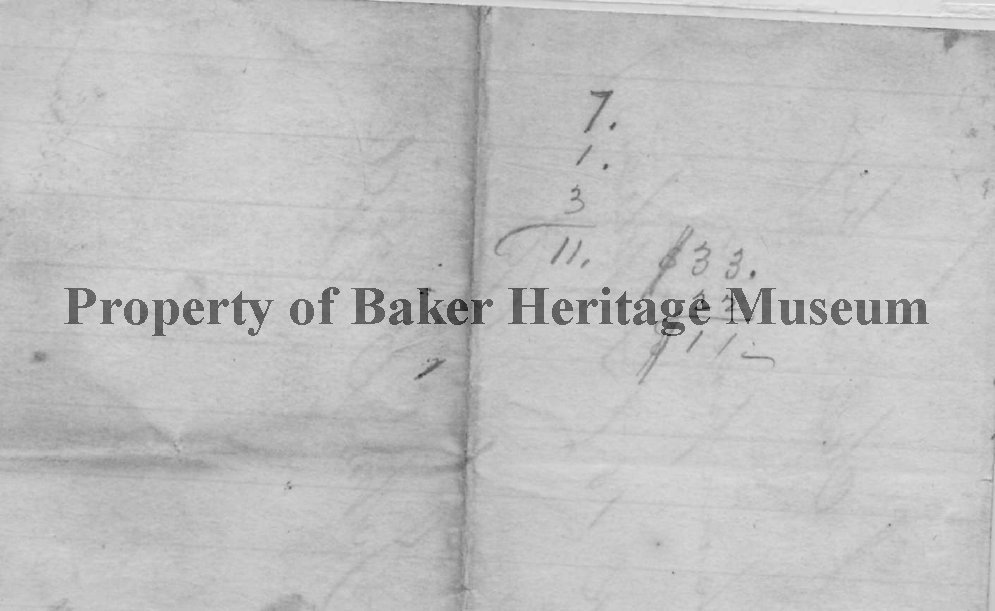 7.
1.
3
11.
$33.
22
$11.
Property of Baker Heritage Museum